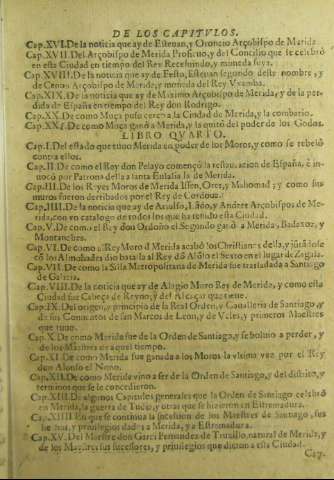 DE LOS CAPITVLOS.
Cap.XVI. De la noticia que ay de Estevan, y Oroncio Arçobispo de Merida
Cap.XVII. Del Arçobispo de Merida Proficuo, y del Concilio que se celebrò
en esta Ciudad en tiempo del Rey Recesuindo, y moneda suya.
Cap.XVIII. De la noticia que ay de Festo, Estefan segundo deste nombre, y
de Arçobispo de Merida, y moneda del Rey Vvamba.
Cap.XIX. De la noticia que ay de Maximo Arçobispo de Merida, y de la per-
dida de España en tiempo del Rey don Rodrigo.
Cap.XX. De como Muça puso cerco a la Ciudad de Merida, y la combatio.
Cap.XXI. De como Muça ganò a Merida, y la quitò del poder de los Godos.
LIBRO QVARTO.
Cap.I. Del estado que tuuo Merida en poder de los Moros, y como se rebelò
contra ellos.
Cap.II. De como el Rey don Pelayo començò la restauracion de España, è in-
uocò por Patrona della a santa Eulalia de Merida.
Cap.III. De los Reyes Moros de Merida y Mahomad; y como sus
muros fueron derribados por el Rey de Cordoua.
Cap.IIII. De la noticia que ay de Ataulfo, y Andres Arçobispos de Me-
rida, con vn catalogo de todos los que ha tenido esta Ciudad.
Cap.V. De como el Rey don Ordoño el Segundo ganò a Merida, Badajoz, y
Cap.VI. De como el Rey Moro de Merida acabò los Christianos della, y
cò los batalla al Rey dō Alōso el Sexto en el lugar de
Cap.VII. De como la Silla Metropolitana de Merida fue trasladada a Santiago
de Galizia.
Cap.VIII. De la noticia que ay de Moro Rey de Merida, y como esta
Ciudad fue Cabeça de Reyno, y del Alcaçar que tiene.
Cap.IX. Del origen, y principio de la Real Orden, y Caualleria de Santiago, y
de sus Conuentos de san Marcos de Leon, y de Veles, y primeros Maestres
que tuuo.
Cap.X. De como Merida fue de la Orden de Santiago, y se boluiò a perder, y
de los Maestres de aquel tiempo.
Cap.XI. De como Merida fue ganada a los Moros la vltima vez por el Rey
don Alonso el Nono.
Cap.XII. De como Merida vino a ser de la Orden de Santiago, y del distrito, y
terminos que se le concedieron.
Cap.XIII. De algunos Capitulos generales que la Orden de Santiago celebrò
en Merida, la guerra de y otras que se hizieron en Estremadura.
Cap.XIIII. En que se continua la sucession de los Maestres de Santiago, sus
y priuilegios dados a Merida, y a Estremadura.
Cap.XV. Del Maestre don Garci Fernandez de Truxillo, natural de Merida, y
de los Maestres sus sucessores, y priuilegios que dieron a esta Ciudad.